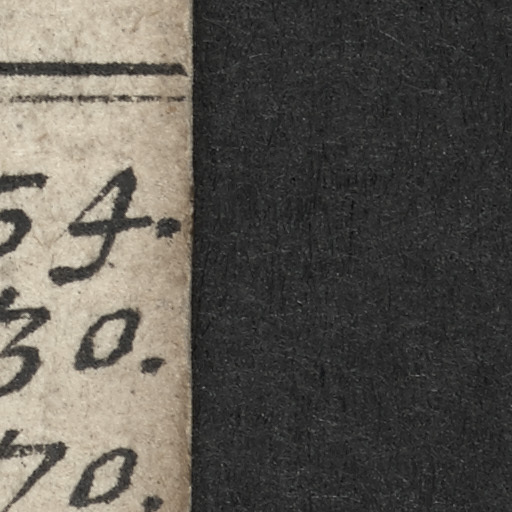 54.
30.
70.